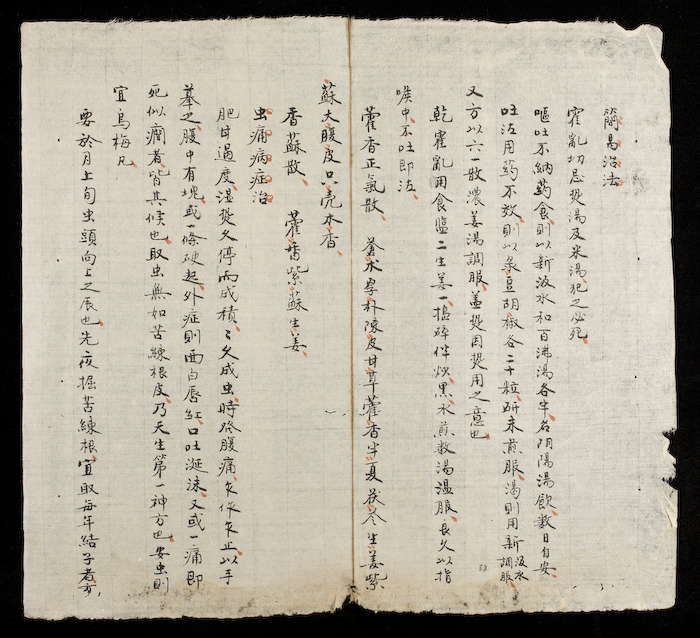 簡易治法
霍亂切忌熱湯及米湯犯之必死
嘔吐不納藥食則以新汲水和百沸湯各半名阴陽湯飲数日自安
吐法用藥不效則以彔豆胡椒各二十粒研末煎服渴則用新汲水調服
又方以六一散濃姜湯調服盖熱因熱用之意也
乾霍亂用食塩二生姜一搗碎伴炒黑水煎数湯温服良久以指
喉中不吐即法
藿香正氣散 蒼术厚朴陳皮甘草藿香半夏茯苓生姜紫
蘇大腹皮只売木香
香蘇散 藿香紫蘇生姜
虫痛病症治
肥甘過度湿熱久停而成積〻久成虫時發腹痛乍作乍止以手
摹之腹中有塊或一條硬起外症則面白唇紅口吐涎沫又或一痛即
死似癎者皆其候也取虫無如苦練根皮乃天生第一神方也安虫則
宜烏梅凡
要於月上旬虫頭向上之辰也先夜掘苦練根宜取每年結子者